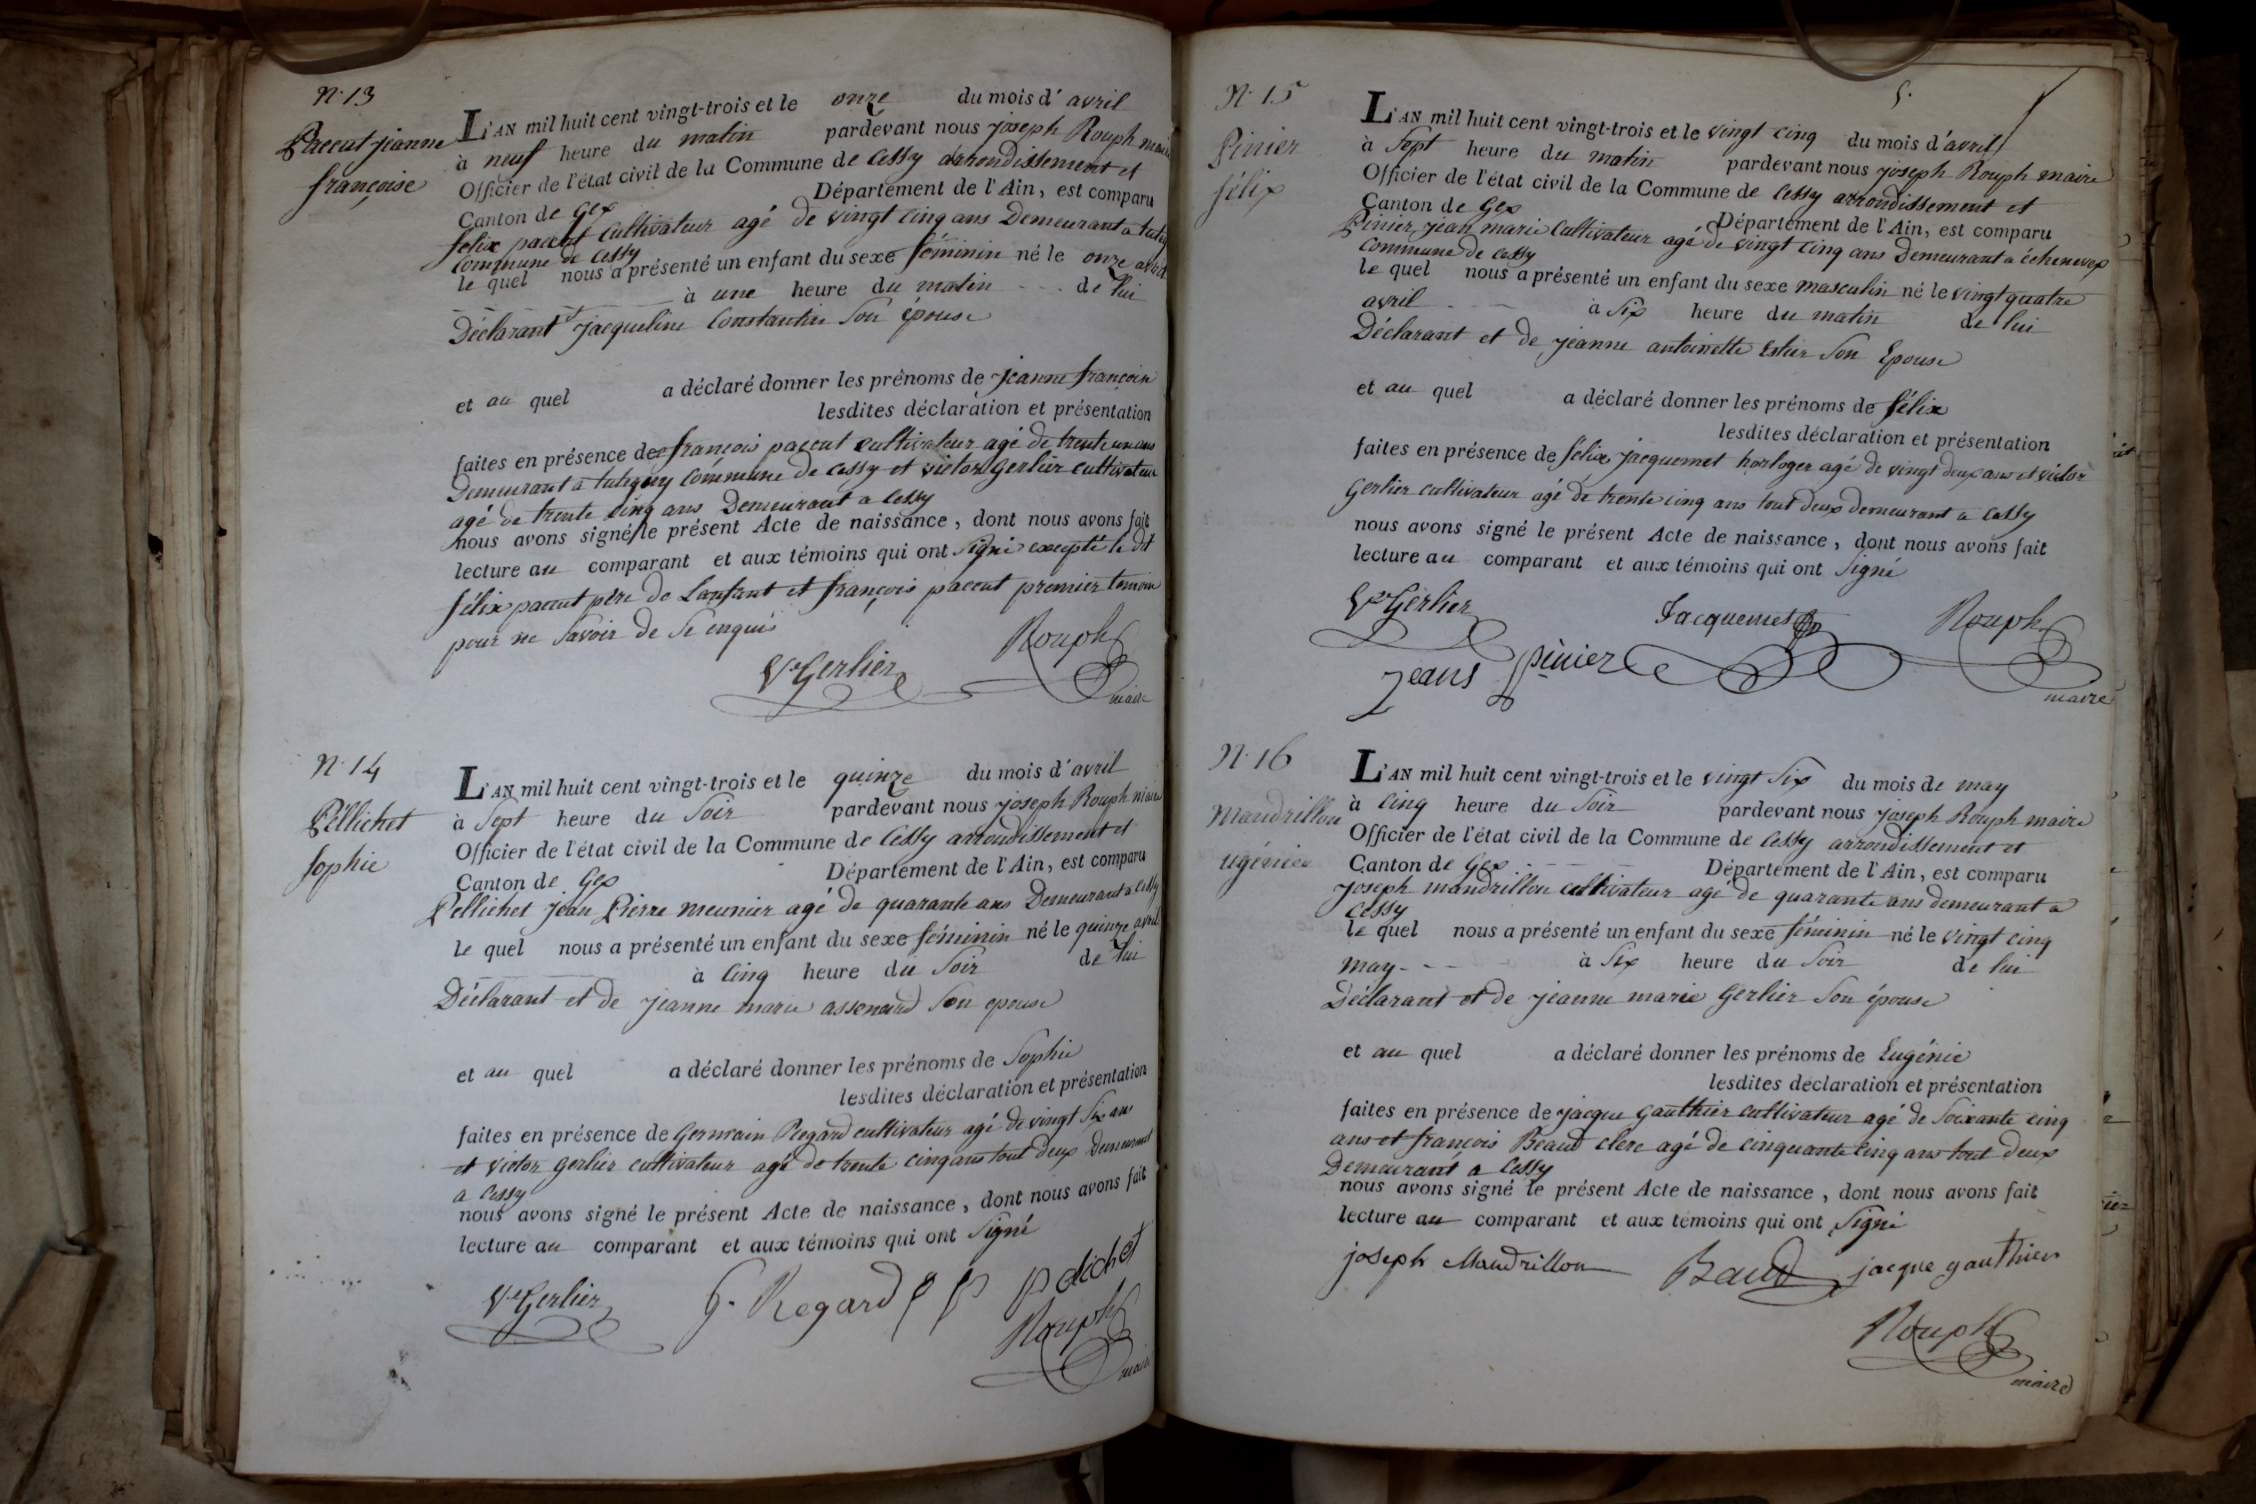 N. 13
Paccut jeanne
françoise
L'AN mil huit cent vingt-trois et le onze du mois d'avril
à neuf heure du matin pardevant nous joseph Rouph maire
Officier de l'état civil de la Commune de Cessy arrondissement et
Canton de Gex Département de l'Ain, est comparu
félix paccut cultivateur agé de vingt cinq ans Demeurant a
commune de Cessy
le quel nous a présenté un enfant du sexe féminin né le onze avril
à une heure du matin de lui
Déclarant et jacqueline Constantin Son épouse
et au quel a déclaré donner les prénoms de jeanne françoise
lesdites déclaration et présentation
faites en présence de françois paccut cultivateur agé de trente un ans
Demeurant a tutegny Commune de Cessy et victor Gerlier cultivateur
agé de trente cinq ans Demeurant a Cessy
nous avons signé le présent Acte de naissance, dont nous avons fait
lecture au comparant et aux témoins qui ont Signé excepté le dit
félix paccut père de Lenfant et françois paccut premier temoin
pour ne Savoir de Se enquis
Vr Gerlier Rouph
maire
N. 14
Pellichet
Sophie
L'AN mil huit cent vingt-trois et le quinze du mois d'avril
à Sept heure du Soir pardevant nous joseph Rouph maire
Officier de l'état civil de la Commune de Cessy arrondissement et
Canton de Gex Département de l'Ain, est comparu
Pellichet jean Pierre meunier agé de quarante ans Demeurant a Cessy
le quel nous a présenté un enfant du sexe féminin né le quinze avril
à Cinq heure du Soir de lui
Déclarant et de jeanne marie Son epouse
et au quel a déclaré donner les prénoms de Sophie
lesdites déclaration et présentation
faites en présence de Germain Regard cultivateur agé de vingt Six ans
et victor Gerlier cultivateur agé de trente cinq ans tout deux Demeurant
a Cessy
nous avons signé le présent Acte de naissance, dont nous avons fait
lecture au comparant et aux témoins qui ont Signé
Vr Gerlier G. Regard
Rouph
maire
5.
N. 15
Pinier
félix
L'AN mil huit cent vingt-trois et le vingt cinq du mois d'avril
à Sept heure du matin pardevant nous joseph Rouph maire
Officier de l'état civil de la Commune de Cessy arrondissement et
Canton de Gex Département de l'Ain, est comparu
Pinier jean marie Cultivateur agé de vingt cinq ans Demeurant a échenevex
Commune de Cessy
le quel nous a présenté un enfant du sexe masculin né le vingt quatre
avril à Six heure du matin de lui
Déclarant et de jeanne antoinette Estier Son Epouse
et au quel a déclaré donner les prénoms de félix
lesdites déclaration et présentation
faites en présence de félix jacquemet horloger agé de vingt deux ans et victor
Gerlier cultivateur agé de trente cinq ans tout deux demeurant a Cessy
nous avons signé le présent Acte de naissance, dont nous avons fait
lecture au comparant et aux témoins qui ont Signé
Vr Gerlier Jacquemet Rouph
Jeans pinier
maire
N. 16
Mandrillon
ugénie
L'AN mil huit cent vingt-trois et le vingt Six du mois de may
à Cinq heure du Soir pardevant nous joseph Rouph maire
Officier de l'état civil de la Commune de Cessy arrondissement et
Canton de Gex Département de l'Ain, est comparu
joseph mandrillon cultivateur agé de quarante ans demeurant a
Cessy
le quel nous a présenté un enfant du sexe féminin né le vingt cinq
may à Six heure du Soir de lui
Déclarant et de jeanne marie Gerlier Son épouse
et au quel a déclaré donner les prénoms de Eugénie
lesdites déclaration et présentation
faites en présence de jacque Gauthier cultivateur agé de Soixante cinq
ans et françois Beaud clerc agé de cinquante cinq ans tout deux
Demeurant a Cessy
nous avons signé le présent Acte de naissance, dont nous avons fait
lecture au comparant et aux témoins qui ont Signé
joseph Mandrillon Baud jacque gauthier
Rouph
maire